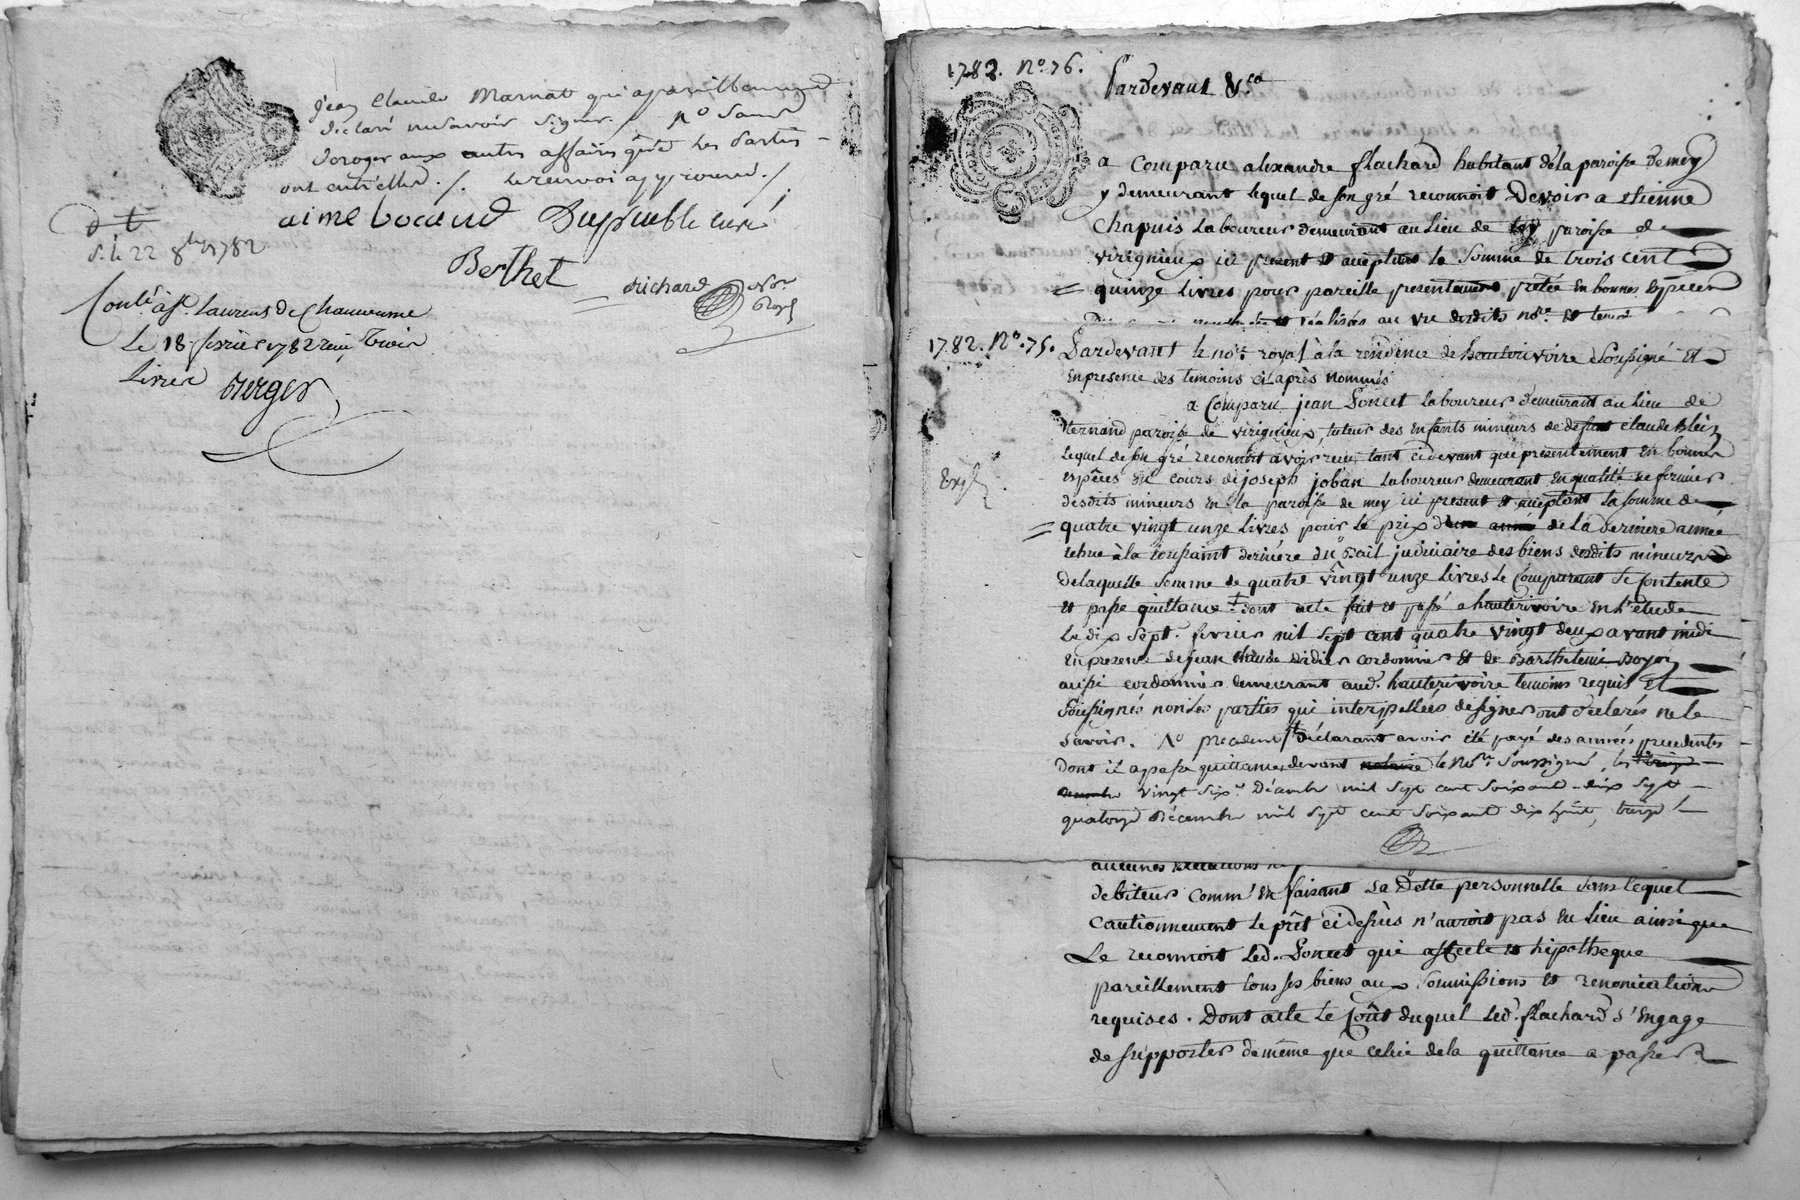 Jean Claude Marnat qui a pareillement
déclaré ne savoir signer. /. No Sans
déroger aux autres affaires que les Parties
ont entr'elles ./. le renvoi approuvé ./.
aimé bocaud Dupuble curé
Berthet
Richard No.re
Royl
d t
S. le 22 8bre 1782
Conlé à St. Laurens de Chamousset
Le 18 fevrier 1782 reçu Trois
Livres
Berger
1782. No. 76.
Pardevant &ca
a Comparu alexandre flachard habitant dela paroisse de mey
y demeurant lequel de son gré reconnoit Devoir a etienne
Chapuis Laboureur demeurant au Lieu de paroisse de
virignieux ici present et aceptant la Somme de trois cent
quinze Livres pour pareille presentement prétée en bonnes espèces
et réalisés au vu desdits nore. et temoi
1782. No. 75. Pardevant le nore. royal à la residence de hauterivoire soussigné et
en presence des temoins cy après nommés
a Comparu jean Poncet Laboureur demeurant au Lieu de
Hernand paroisse de virignieux, tuteur des enfants mineurs de defunt claude Blein
Lequel de son gré reconnoit avoir reçu tant cidevant que presentement en bonnes
espèces du cours de joseph joban Laboureur demeurant en qualité de fermier
desdits mineurs en la paroisse de mey ici present et aceptant la somme de
quatre vingt unze Livres pour le prix d'une année de la derniere année
echue à la toussaint derniere du Bail judiciaire des biens desdits mineurs
de laquelle somme de quatre vingt unze Livres le Comparant se contente
et passe quittance. dont acte fait et passé a hauterivoire en l'etude
Le dix sept. fevrier mil sept cent quatre vingt deux avant midi
en presence de jean claude didier cordonnier et de Barthelemi Boyer
aussi cordonnier demeurant aud. hauterivoire temoins requis et
soussignés non les parties qui interpellées de signer ont déclarés ne le
savoir. No precedent déclarant avoir été payé des années precedentes
dont il a passé quittances devant notaire le Nore. soussigné, les
decembre vingt six Décembre mil sept cent soixante-dix sept
quatorze Décembre mil sept cent soixante dix huit, treize
Expé
aucunes executions
debiteur comm' en faisant sa dette personnelle sans lequel
cautionnement le prêt ci dessus n'auroit pas eu lieu ainsi que
Le reconnoit led. Poncet qui affecte et hipotheque
pareillement tous ses biens aux soumissions et renonciations
requises. Dont acte le Coût duquel led. flachard s'engage
de supporter de même que celui de la quittance a passer